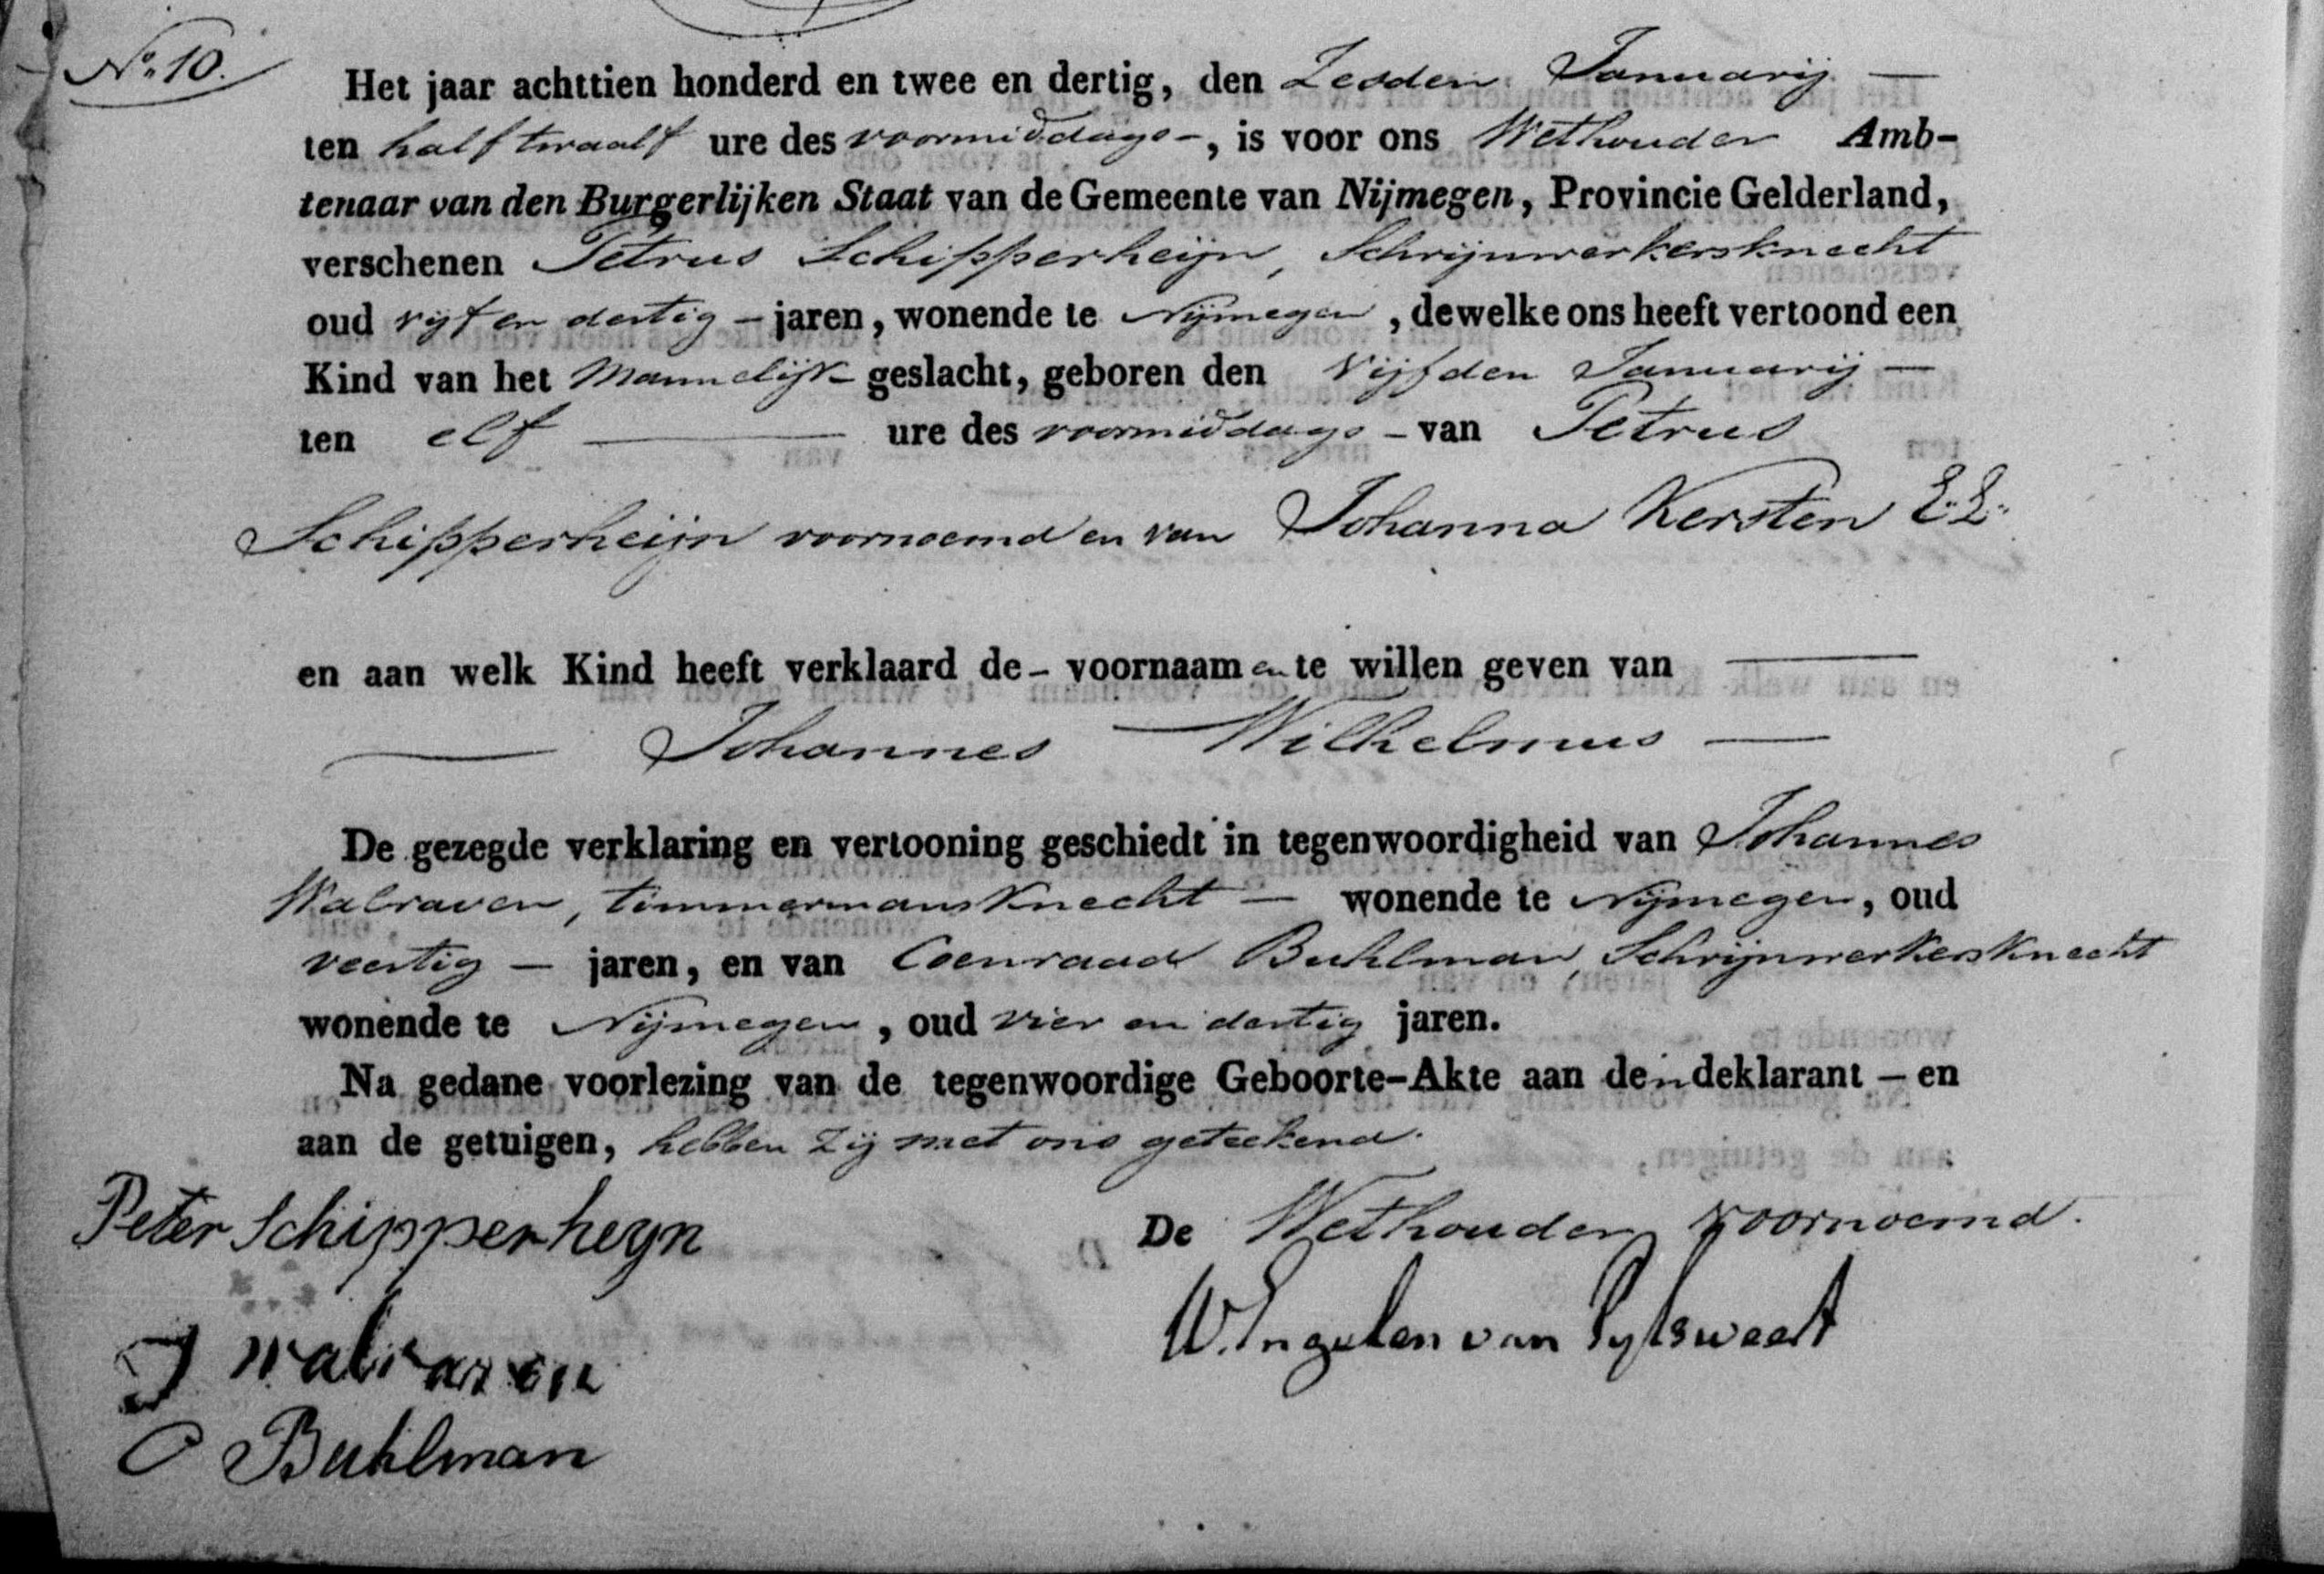 No. 10.
Het jaar achttien honderd en twee en dertig, den Zesden Januarij —
ten half twaalf ure des voormiddags -, is voor ons Wethouder Amb-
tenaar van den Burgerlijken Staat van de Gemeente van Nijmegen, Provincie Gelderland,
verschenen Petrus Schipperheijn, Schrijnwerkersknecht
oud vijf en dertig - jaren, wonende te Nijmegen, dewelke ons heeft vertoond een
Kind van het Mannelijk - geslacht, geboren den Vijfden Januarij —
ten elf — ure des voormiddags - van Petrus
Schipperheijn voornoemd en van Johanna Kersten E.L.
en aan welk Kind heeft verklaard de - voornaamen te willen geven van —
— Johannes Wilhelmus —
De gezegde verklaring en vertooning geschiedt in tegenwoordigheid van Johannes
Walraven, timmermansknecht — wonende te Nijmegen, oud
veertig — jaren, en van Coenraad Buhlman, Schrijnwerkersknecht
wonende te Nijmegen, oud vier en dertig jaren.
Na gedane voorlezing van de tegenwoordige Geboorte-Akte aan den deklarant - en
aan de getuigen, hebben zij met ons geteekend.
Peter Schipperheyn
De Wethouder voornoemd.
J walraven
W. Engelen van Pylsweert
C Buhlman